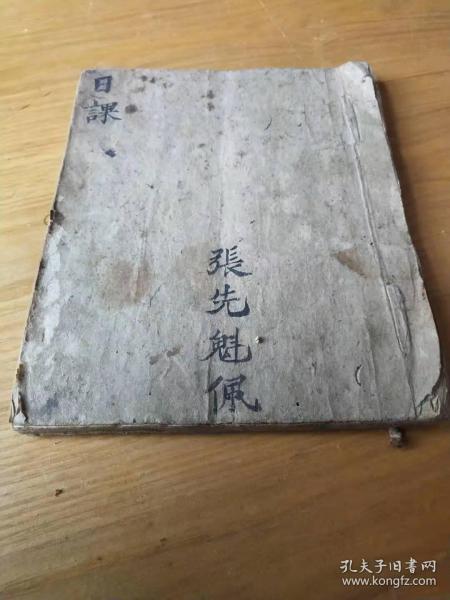 日課
張先魁佩
孔夫子旧书网
www.kongfz.com